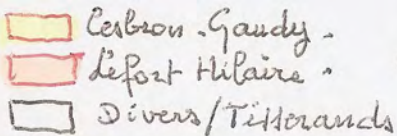 Cesbron - Gaudy -
Lefort Hilaire -
Divers/Tisserands